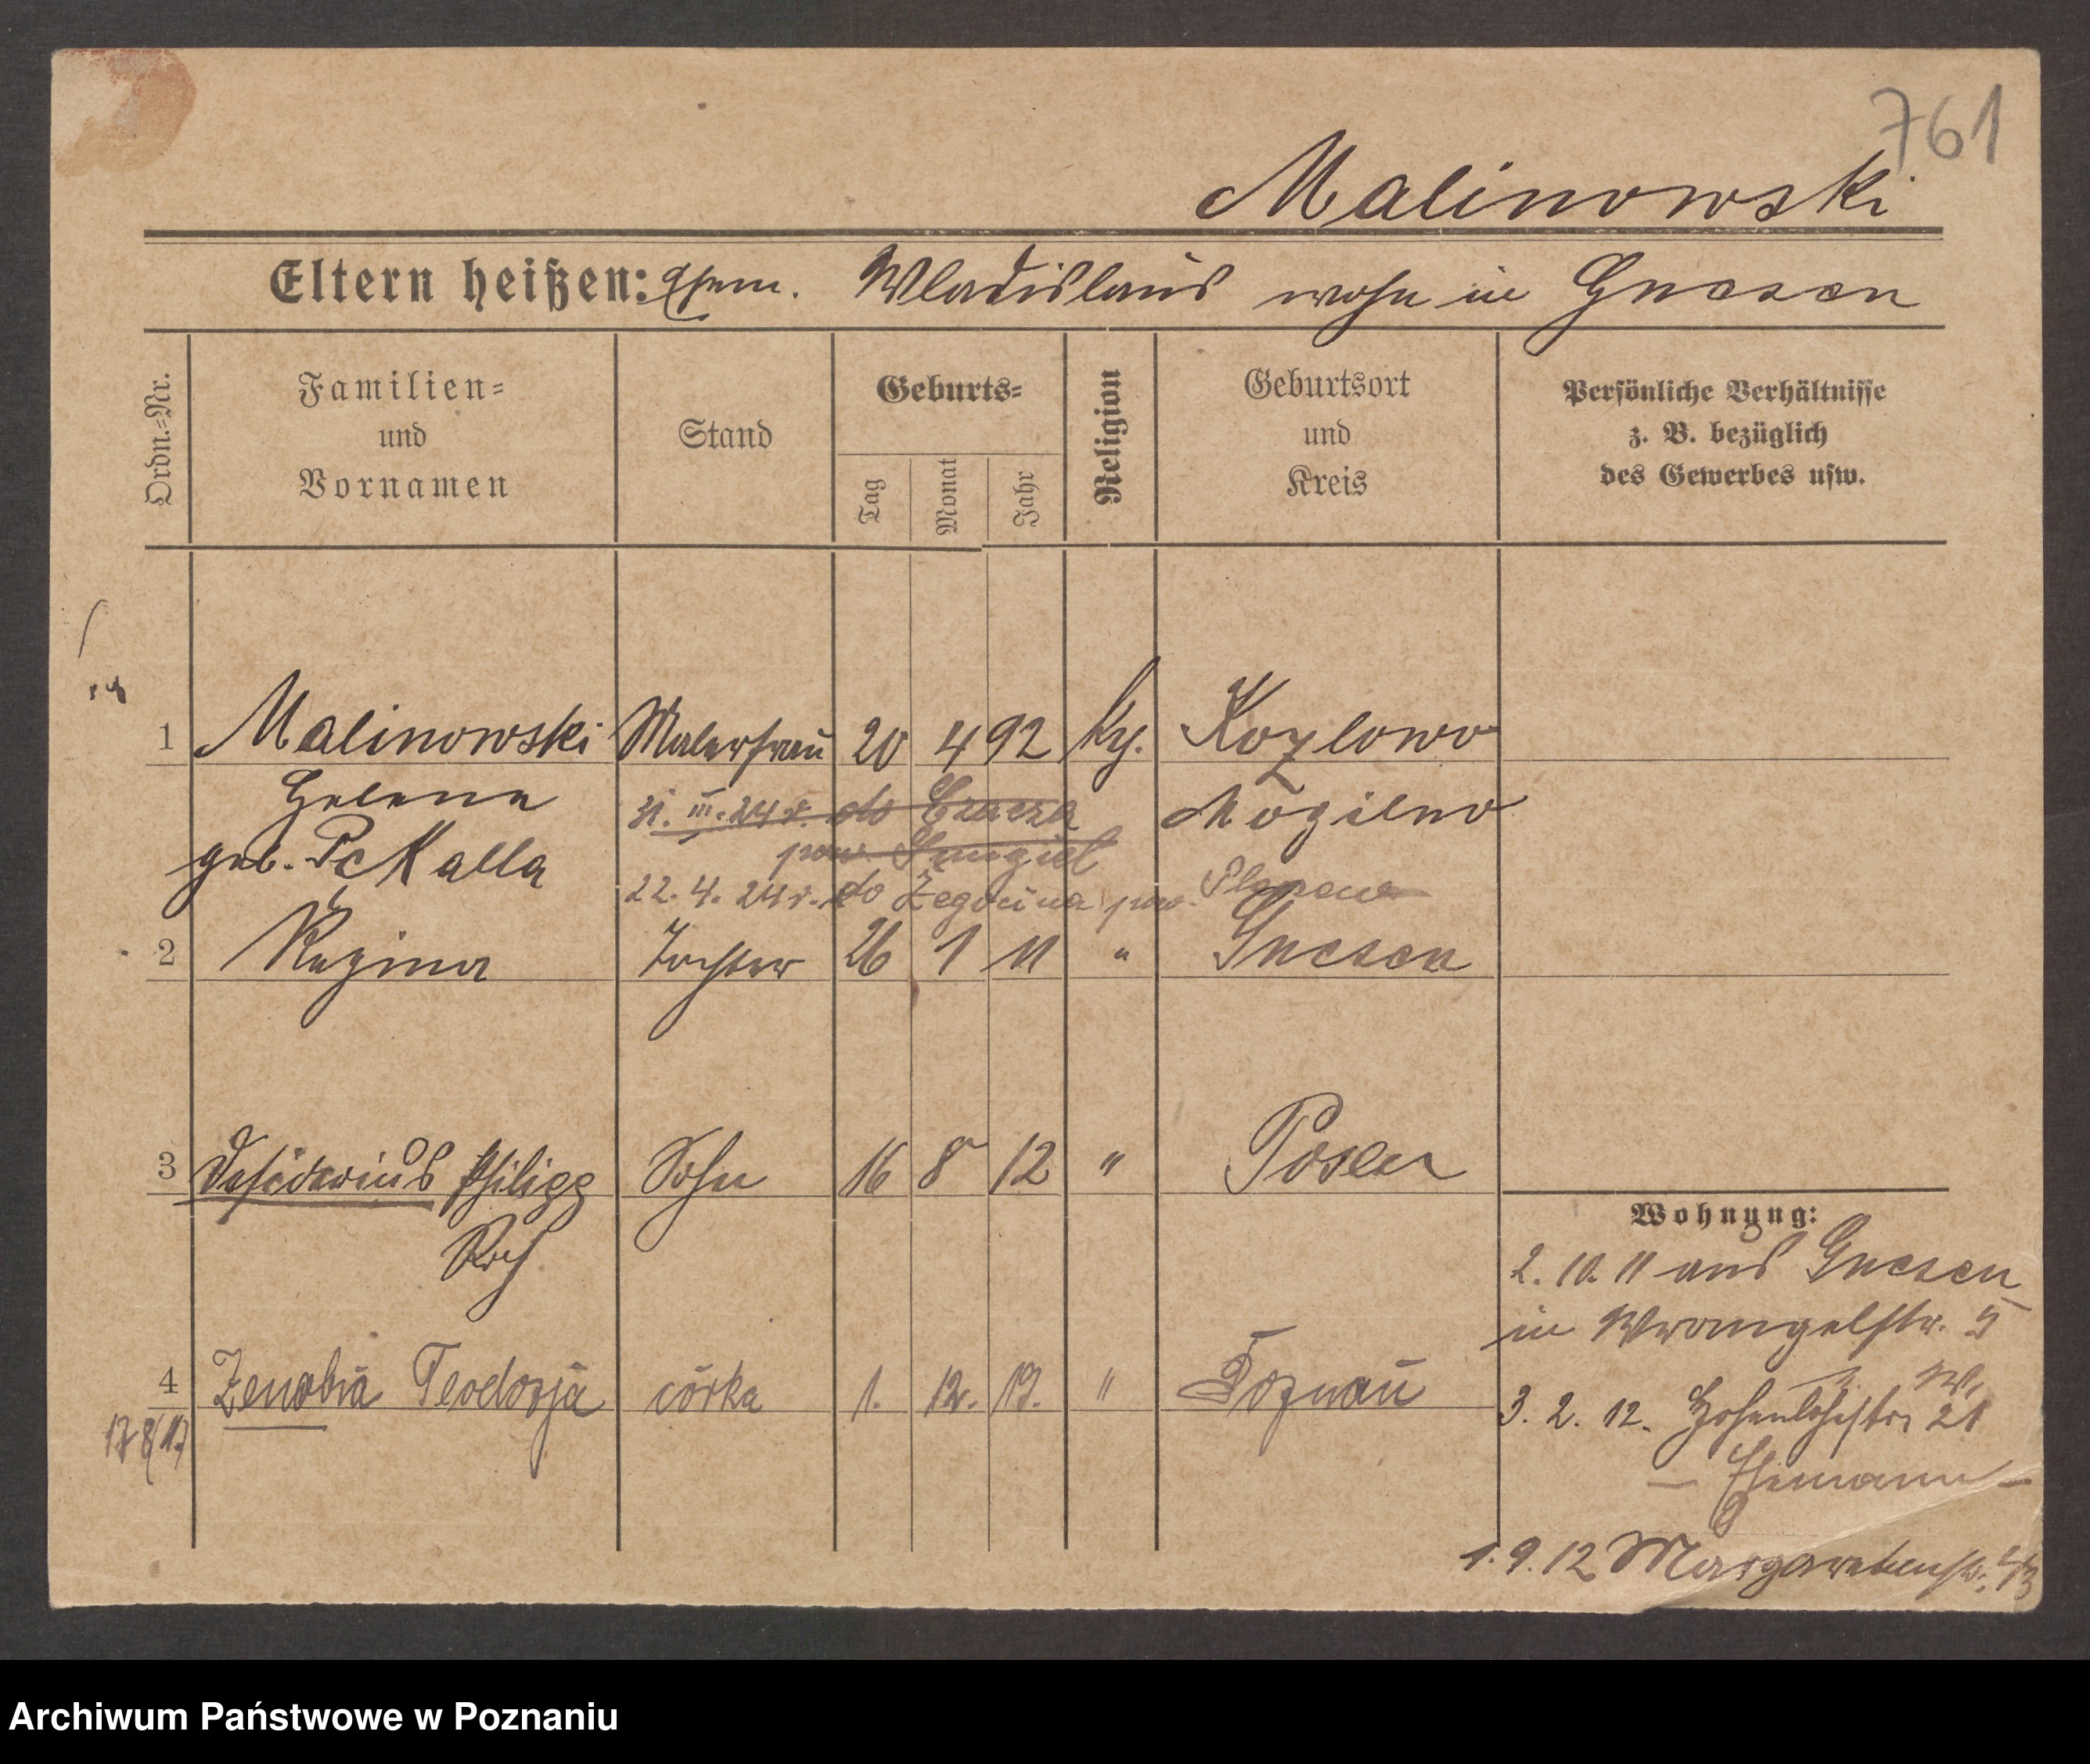 761
Malinowski
Eltern heißen: Ehem. Wladislaus wohn in Gnesen
Ordn.-Nr.
Familien- und Vornamen
Stand
Geburts-
Tag
Monat
Jahr
Religion
Geburtsort und Kreis
Persönliche Verhältnisse
z. B. bezüglich
des Gewerbes usw.
1 Malinowski Malerfrau 20 4 92 kth. Kozlowo
Helene 31. III. 24 r. do Czacza Mogilno
geb. Pckalla pow. Śmigiel
22. 4. 24 r. do Żegocina pow. Pleszew
2 Regina Tochter 26 1 11 " Gnesen
3 Desiderius Philipp Sohn 16 8 12 " Posen
Roch
Wohnung:
2. 10. 11 aus Gnesen
in Wrangelstr. 5
4 Zenobia Teodozja córka 1. 12. 19. " Poznań
3. 2. 12. Hohenlohestr. 21
– Ehemann –
1. 9. 12 Margaretenstr. 43
Archiwum Państwowe w Poznaniu